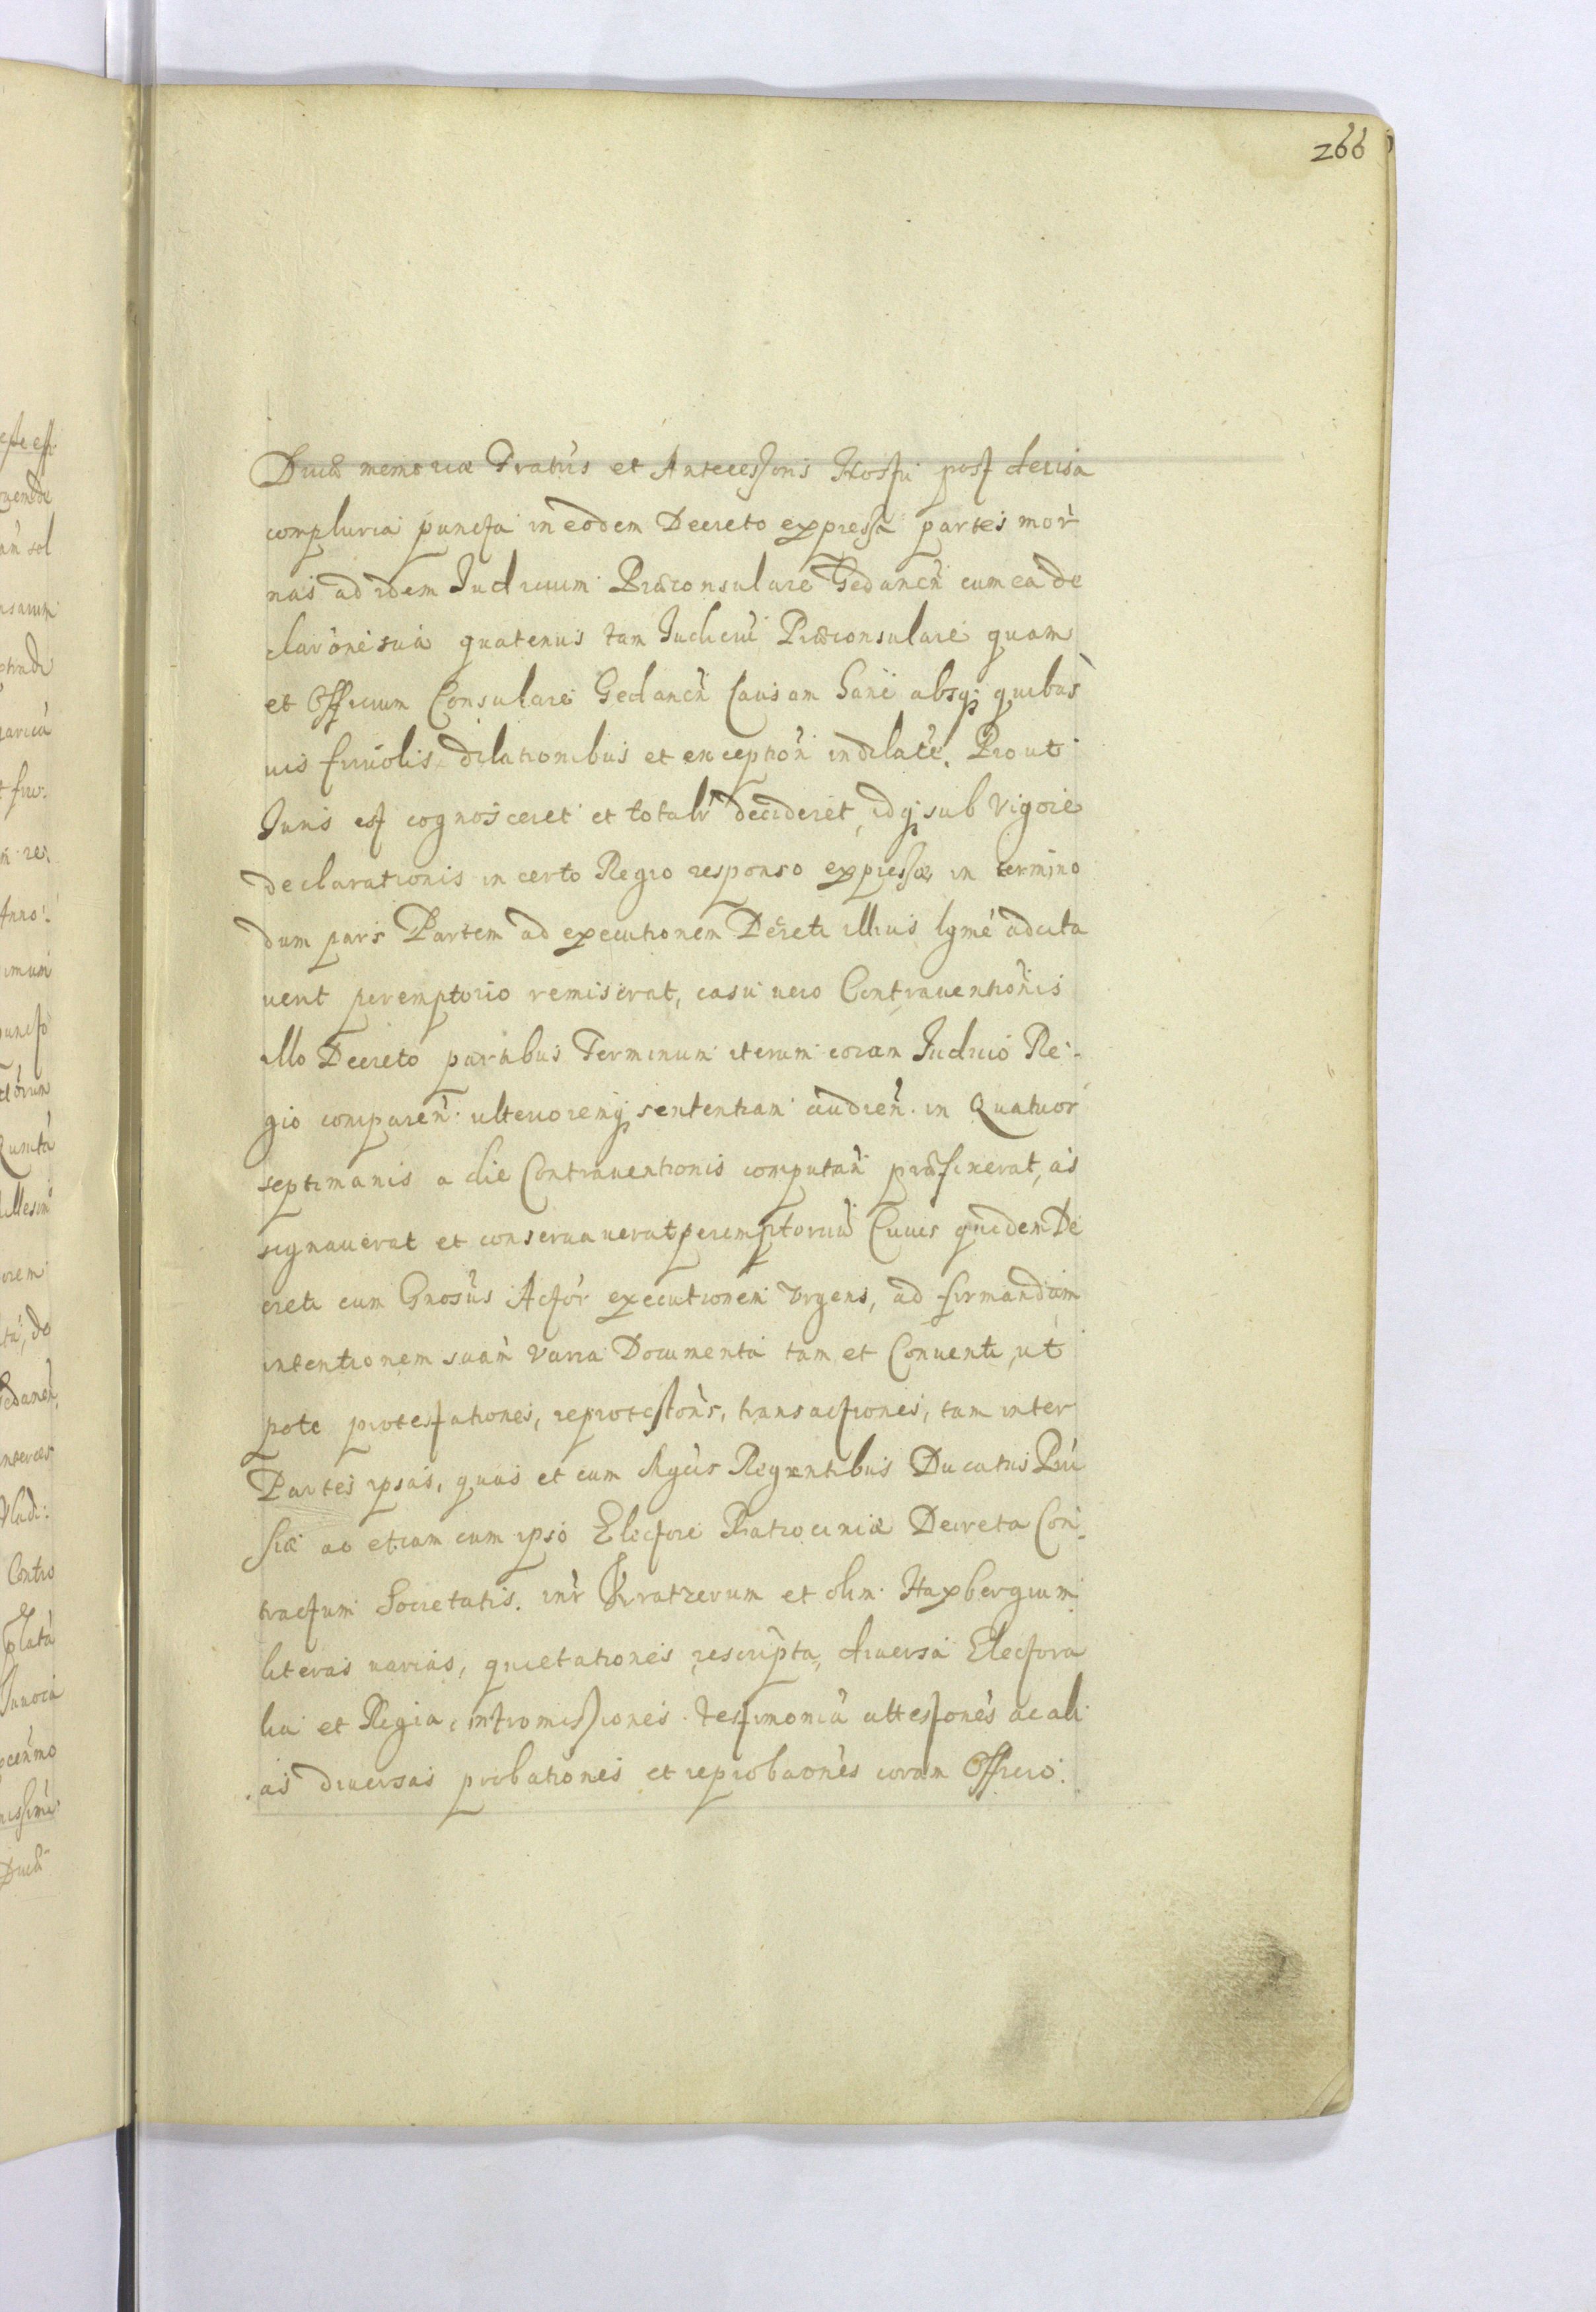 266
Divæ memoriæ Fratris et Antecessoris Nostri post decisa
compluria puncta in eodem Decreto expressa partes mor
nas ad idem Judicium Præconsulare Gedanen̄ cum ea de
clarōne sua quatenus tam Judiciu Præconsulare quam
et Officium Consulare Gedanen̄ Causam hanc absq; quibus
uis friuolis dilationibus et exception̄ indilate. Prout
Juris est cognosceret et totalr decideret, idq; sub vigore
declarationis in certo Regio responso expressæ in termino
dum pars Partem ad executionem Decreti illius lgme adcita
uerit peremptorio remiserat, casu uero Contrauentionis
illo Decreto partibus Terminum iterum coram Judicio Re-
gio comparen̄. ulterioremq; sententiam audien̄. in Quatuor
septimanis a die Contrauentionis computan̄ præfixerat, as
signauerat et conseruauerat peremptoriu Cuius quidem De
creti cum Gnosus Actor executionem vrgens, ad firmandum
intentionem suam varia Documenta tam et Conuenti, ut
pote protestationes, reprotestōns, transactiones, tam inter
Partes ipsas, quas et cum Regentibus Ducatus Pru
ssiæ ac etiam cum ipso Electore Ratiociniæ Decreta Con-
tractum Societatis. intr Kratzerum et olim Haxbergium
literas varias, quietationes rescripta, diuersa Electora
lia et Regia, intromissiones. testimonia attestōnes ac ali
as diuersas probationes et reprobaōnes coram Officio.